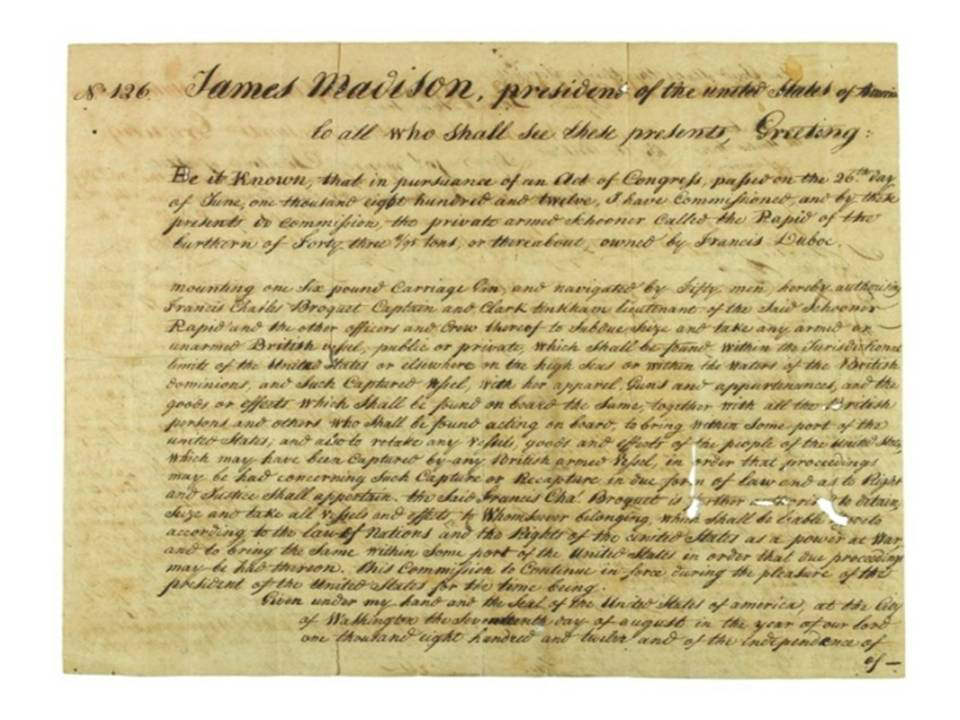 No 126. James Madison, president of the united States of America
to all who shall see these presents, Greeting:
Be it Known, that in pursuance of an Act of Congress, passed on the 26th day
of June, one thousand eight hundred and twelve, I have Commissioned, and by these
presents do commission, the private armed Schooner Called the Rapid of the
burthern of Forty three tons, or thereabout, owned by Francis Duboc.
mounting one Six pound Carriage Gun, and navigated by Fifty men, hereby authorising
Francis Charles Broquet Captain and Clark lieutenant of the Said Schooner
Rapid and the other officers and Crew thereof to Subdue, Seize and take any armed or
unarmed British vessel, public or private, which Shall be found within the Jurisdictional
limits of the United States or elsewhere on the high Seas or within the waters of the British
dominions, and Such Captured vessel, with her apparel, Guns and appurtenances, and the
goods or effects which Shall be found on board the Same, together with all the British
persons and others who Shall be found acting on board, to bring within Some port of the
united States; and also to retake any vessels, goods and effects of the people of the United States,
which may have been Captured by any British armed vessel, in order that proceedings
may be had concerning Such Capture or Recapture in due form of law and as to Right
and Justice Shall appertain. the Said Francis Chas. Broquet is to detain,
Seize and take all vessels and effects, to Whomsoever belonging, which Shall be liable
according to the law of Nations and the Rights of the United States as a power at War
and to bring the Same within Some port of the United States in order that due proceedings
may be had thereon. this Commission to Continue in force during the pleasure of the
president of the United States for the time being.
Given under my hand and the Seal of the United States of america, at the City
of Washington the Seventeenth day of august in the year of our lord
one thousand eight hundred and twelve and of the independence of
of —